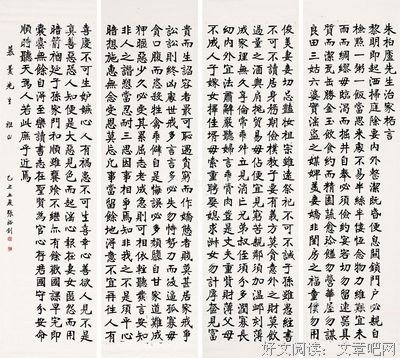 朱柏廬先生治家格言
黎明即起洒掃庭除要內外整潔既昏便息關鎖門戶必親自
檢點一粥一飯當思來處不易半絲半縷恒念物力維艱宜未
雨而綢繆毋臨渴而掘井自奉必須儉約宴客切勿留連器具
質而潔瓦缶勝金玉飲食約而精園蔬愈珍饈勿營華屋勿謀
良田三姑六婆實淫盜之媒婢美妾嬌非閨房之福童僕勿用
俊美妻妾切忌豔妝祖宗雖遠祭祀不可不誠子孫雖愚經書
不可不讀居身務期儉樸教子要有義方莫貪意外之財莫飲
過量之酒與肩挑貿易毋佔便宜見窮苦親鄰須加溫卹刻薄
成家理無久享倫常乖舛立見消亡兄弟叔姪須分多潤寡長
幼內外宜法肅辭嚴聽婦言乖骨肉豈是丈夫重貲財薄父母
不成人子嫁女擇佳婿毋索重聘娶媳求淑女勿計厚奩見富
貴而生諂容者最可恥遇貧窮而作驕態者賤莫甚居家戒爭
訟訟則終凶處世戒多言言多必失勿恃勢力而凌逼孤寡毋
貪口腹而恣殺牲禽乖僻自是悔誤必多頹惰自甘家道難成
狎暱惡少久必受其累屈志老成急則可相依輕聽發言安知
非人之譖愬當忍耐三思因事相爭焉知非我之不是須平心
暗想施惠無念受恩莫忘凡事當留餘地得意不宜再往人有
喜慶不可生妒嫉心人有禍患不可生喜幸心善欲人見不是
真善惡恐人知便是大惡見色而起淫心報在妻女匿怨而用
暗箭禍延子孫家門和順雖饔飧不繼亦有餘歡國課早完即
囊橐無餘自得至樂讀書志在聖賢為官心存君國守分安命
順時聽天為人若此庶乎近焉
先生 張裕釗
好文阅读：-文章吧网